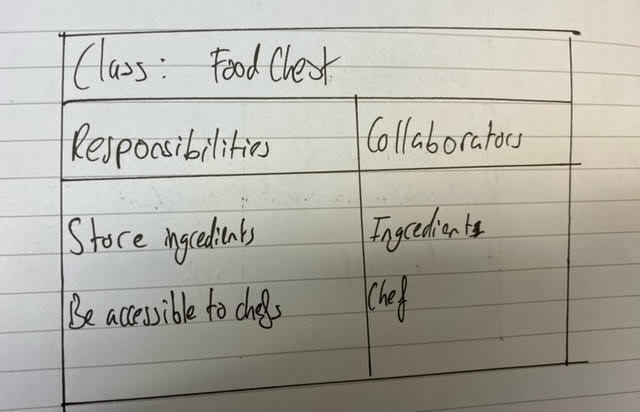 Class: Food Chest
Responsibilities Collaborators
Store ingredients Ingredients
Be accessible to chefs Chef